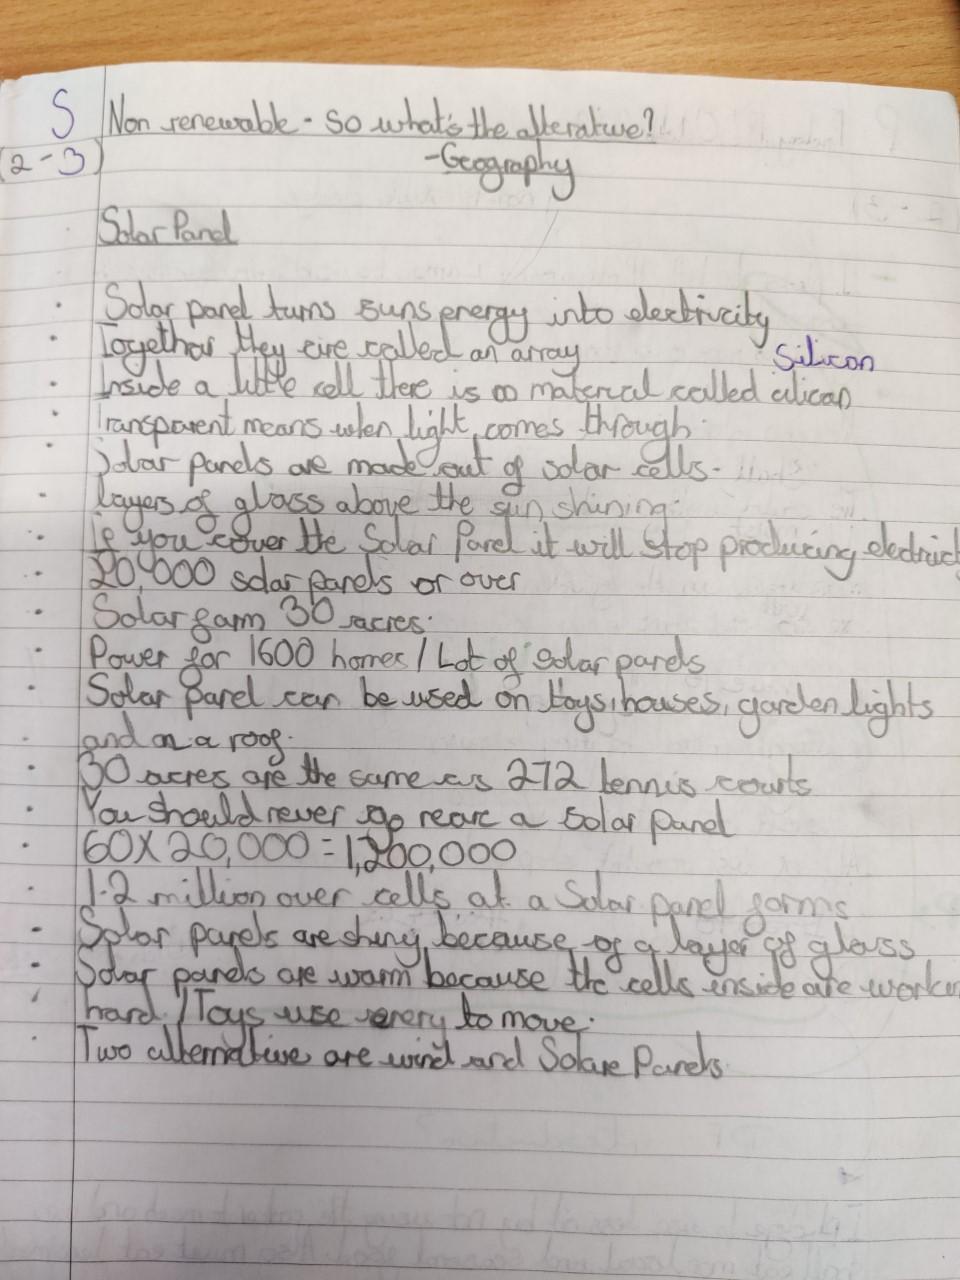 S Non renewable - so what's the alterative?
(2-3) - Geography
Solar Panel
· Solar panel turns suns energy into electricity
· Together they are called an array
silicon
· Inside a little cell there is a material called cilicon
· Transparent means when light comes through.
· Solar panels are made out of solar cells.
· Layers of glass above the sun shining.
· If you cover the Solar Panel it will stop producing electric
· 20,000 solar panels or over
· Solar farm 30 acres.
· Power for 1600 homes / Lot of solar panels
· Solar Panel can be used on toys, houses, garden lights
and on a roof.
· 30 acres are the same as 272 tennis courts
· You should never go near a solar panel
· 60 x 20,000 = 1,200,000
· 1.2 million over cells at a Solar panel farms
· Solar panels are shiny because of a layer of glass
· Solar panels are warm because the cells inside are workin
hard / Toys use enery to move.
· Two alternative are wind and Solare Panels